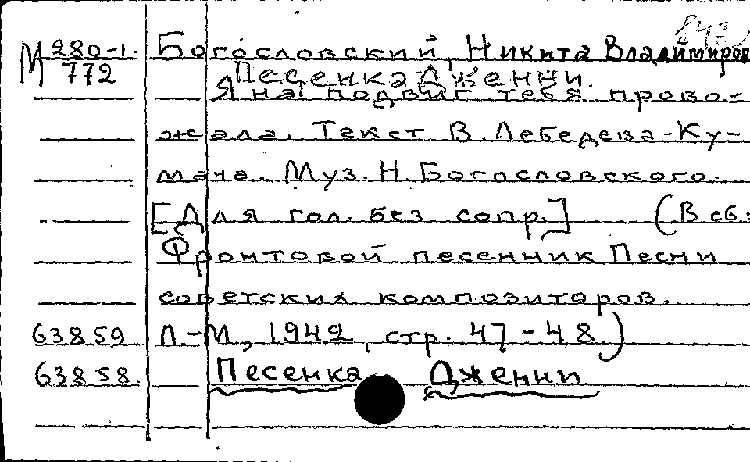 М 280-1. Богословский, Никита Владимиров
772 Песенка Дженни.
Я на подвиг тебя прово-
жала. Текст В. Лебедева-Ку-
мача. Муз. Н. Богословского.
[Для гол. без сопр.] (В сб.:
Фронтовой песенник Песни
советских композиторов.
63859 Л.-М., 1942, стр. 47-48.)
63858. Песенка Дженни